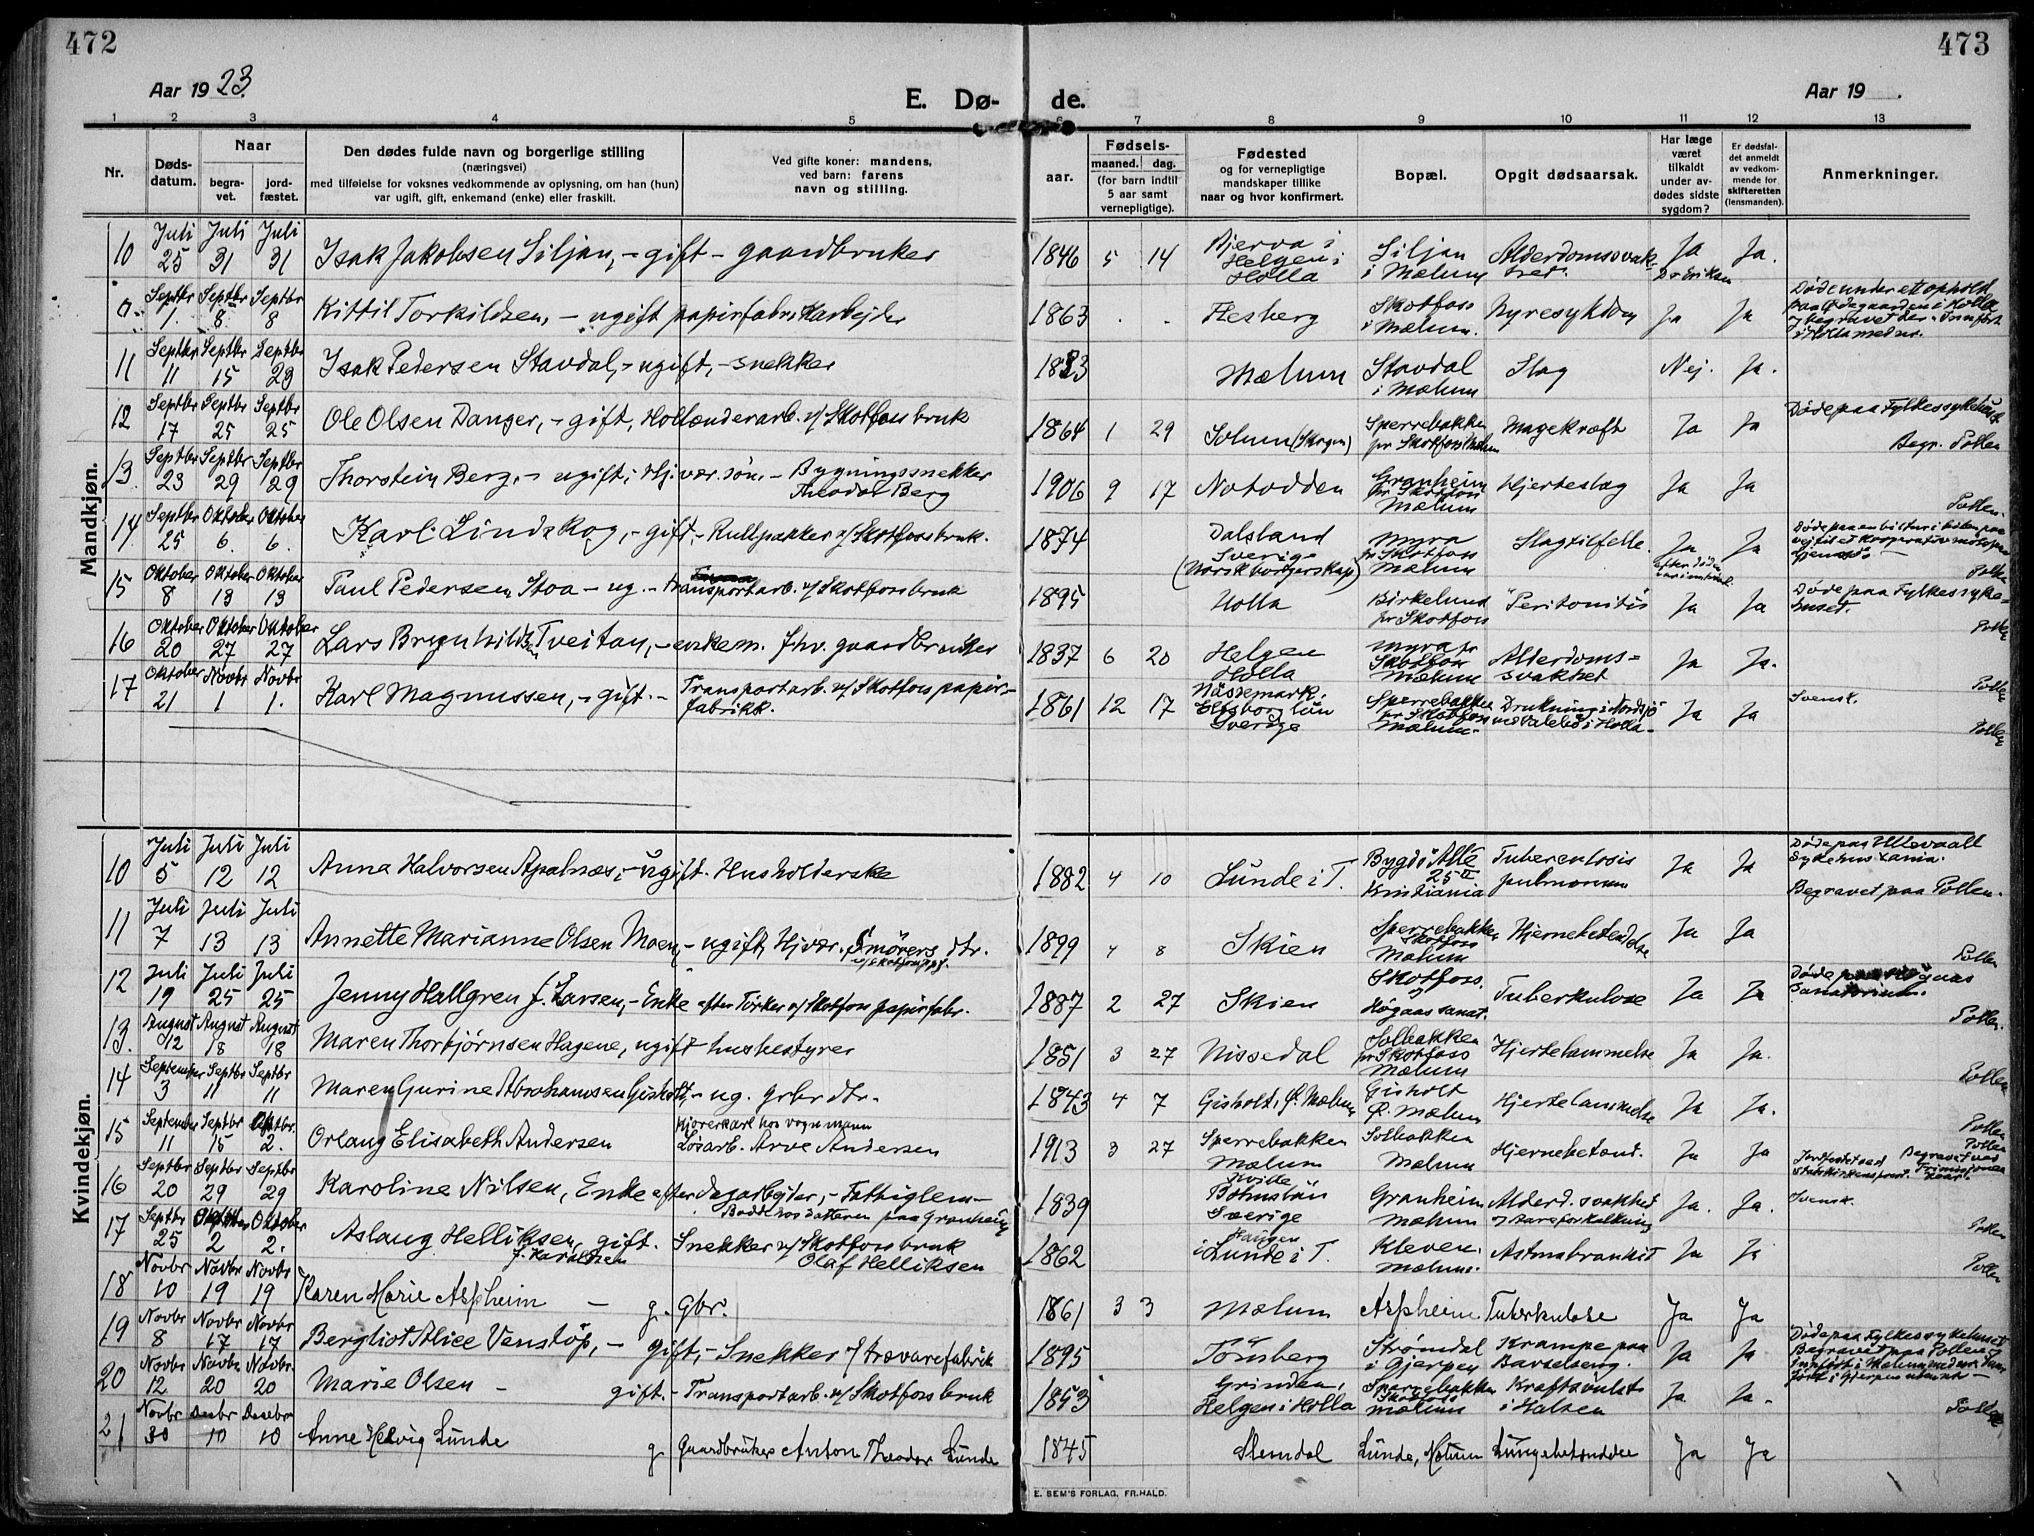 472
473
Aar 1923.
E. Dø- de.
Aar 19 .
1 2 3 4 5 6 7 8 9 10 11 12 13
Nr.
Døds-
datum.
Naar
begra-
vet.
jord-
fæstet.
Den dødes fulde navn og borgerlige stilling
(næringsvei)
med tilføielse for voksnes vedkommende av oplysning, om han (hun)
var ugift, gift, enkemand (enke) eller fraskilt.
Ved gifte koner: mandens,
ved barn: farens
navn og stilling.
Fødsels-
aar.
maaned. dag.
(for barn indtil
5 aar samt
vernepligtige).
Fødested
og for vernepligtige
mandskaper tillike
naar og hvor konfirmert.
Bopæl.
Opgit dødsaarsak.
Har læge
været
tilkaldt
under av-
dødes sidste
sygdom?
Er dødsfal-
det anmeldt
av vedkom-
mende for
skifteretten
(lensmanden).
Anmerkninger.
Mandkjøn.
10 Juli 25 Juli 31 Juli 31 Isak Jakobsen Siljan, - gift - gaardbruker 1846 5 14 Bjerva i Helgen i Holla Siljan i Mælum Alderdomssvakhet Ja Ja.
0. Septbr 1. Septbr 8. Septbr 8 Kittil Torkildsen, - ugift papirfabrikarbejder 1863 . . Hesberg Skotfoss i Mælum. Nyresykdom Ja Ja Døde under et ophold paa Ødegaarden i Holla og begravet der. Indført i Holla med nr.
11 Septbr 11 Septbr 15 Septbr 23 Isak Pedersen Stavdal, - ugift, - snekker Mælum Stavdal i Mælum Slag Nej. Ja.
12 Septbr 17 Septbr 25 Septbr 25 Ole Olsen Danger, - gift, Hollænderarb. v/ Skotfoss bruk 1864 1 29 Solum (Skogen) Sperrebakken pr Skotfoss Mælum Mavekræft Ja Ja Døde paa Fylkessykehuset. Begr. Pollen
13. Septbr 23 Septbr 29 Septbr 29 Thorstein Berg, - ugift, Hj.vær. søn. - Bygningssnekker Theodor Berg 1906 9 17 Notodden Granheim pr Skotfoss Mælum Hjerteslag Ja Ja Pollen.
14 Septbr 25 Oktober 6. Oktober 6. Karl Lindskog, - gift - Rullpakker v/ Skotfoss bruk. 1874 Dalsland Sverige (Norsk borgerskap) Myra pr Skotfoss Mælum Slagtilfelle Ja efter døden Ja Pollen
15 Oktober 8 Oktober 13 Oktober 13 Paul Pedersen Stoa - ug. - transportarb. v/ Skotfoss bruk 1895 Holla Birkelund pr Skotfoss Peritonitis Ja Ja Døde paa Fylkessykehuset. Pollen
16 Oktober 20 Oktober 27 Oktober 27 Lars Brynhildsen Tveitan, - enkem. fhv. gaardbruker 1837 6 20 Helgen Holla Myra pr Skotfoss Mælum Alderdoms-svakhet Ja Ja. Pollen
17 Oktober 21 Novbr 1 Novbr 1. Karl Magnussen, - gift. - Transportarb. v/ Skotfoss papir-fabrikk. 1861 12 17 Elfsborg län Sverige Sperrebakken pr Skotfoss Mælum. Drukning i Nordsjø ved Valebø i Holla - Ja Ja Svensk. Pollen
Kvindekjøn.
10 Juli 5 Juli 12 Juli 12 Anna Halvorsen Apalnæs, - ugift. Husholderske 1882 4 10 Lunde i T. Bygdø Allé 25 II Kristiania Tuberculosis pulmonum Ja Ja Døde paa Ullevaall Sykehus Xania. Begravet paa Pollen.
11 Juli 7 Juli 13 Juli 13 Annette Marianne Olsen Moen, - ugift, Hj.vær. Smørers dtr. 1899 4 8 Skien Sperrebakken Skotfoss Mælum Hjernebetendelse Ja Ja Pollen
12 Juli 19 Juli 25 Juli 25 Jenny Hallgren f. Larsen, - Enke efter Tørker v/ Skotfoss papirfabr. 1887 2 27 Skien Skotfoss. Høgaas sanat. Tuberkulose Ja Ja Døde Høgaas Sanatorium. Pollen.
13. August 12 August 18 August 18 Maren Thorbjørnsen Hagene, ugift husbestyrer 1851 3 27 Nissedal Solbakken pr Skotfoss Mælum Hjertelammelse Ja Ja. Pollen
14 September 3 Septbr 11 Septbr 11 Maren Gurine Abrahamsen Gisholt, - ug. grbr dtr. 1843 4 7 Gisholt, Ø. Mælum Gisholt Ø. Mælum Hjertelammelse Ja Ja. Pollen
15 September 11 Septbr 15 Oktbr. 2. Orlaug Elisabeth Andersen Kjørerkarl hos vognmann Løsarb. Arve Andersen 1913 3 27 Sperrebakken Mælum Solbakken Mælum Hjernebetænd. Ja Ja Pollen
16 Septbr 20 Septbr 29 Septbr 29 Karoline Nilsen, Enke efter dagarbejder, - Fattiglem - Bodde hos datteren paa Granheim 1839 Sverige Granheim Mælum Alderd. svakhet og Aareforkalkning Ja. Ja. Svensk. Pollen
17 Septbr 25 Oktober 2 Oktober 2. Aslaug Helliksen, gift. Snekker v/ Skotfoss bruk Olaf Helliksen 1862 i Lunde i T. Kleven. Mælum. Astmabronkit Ja Ja Pollen
18 Novbr 10 Novbr 19 Novbr 19 Karen Marie Aspheim - g. Gbr. 1861 3 3 Mælum Aspheim Tuberkulose Ja Ja
19 Novbr 8 Novbr 17 Novbr 17 Bergliot Alice Venstøp, - gift, - Snekker v/ trævarefabrik 1895 Tönsberg Strømdal i Gjerpen Krampe paa Barselseng. Ja Ja Døde paa Fylkessykehuset Begravet paa Pollen
20 Novbr 12 Novbr 20 Novbr. 20 Marie Olsen - gift. - Transportarb. v/ Skotfoss bruk 1853 Grinden, Helgen i Holla Sperrebakken Skotfoss Mælum Kraftsvulst i Halsen Ja Ja. Pollen
21 Novbr 30 Desbr 10 Desebr 10 Anne Helvig Lunde g Gaardbruker Anton Theodor Lunde 1845 Slemdal Lunde, Mælum Lungebetændelse Ja Ja
E. SEM'S FORLAG, FR.HALD.